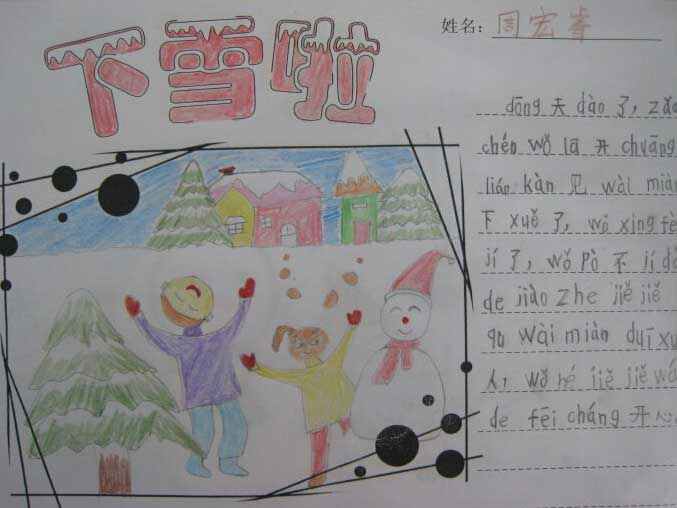 下雪啦
姓名：周宏睿
dōng 天 dào 了，zǎo
chén wǒ lā 开 chuāng
lián kàn 见 wài miàn
下 xuě 了，wǒ xìng fèn
jí 了，wǒ pò 不 jí dà
de jiào zhe jiě jiě
qu wài miàn duī xu
人，wǒ hé jiě jiě wá
de fēi cháng 开心